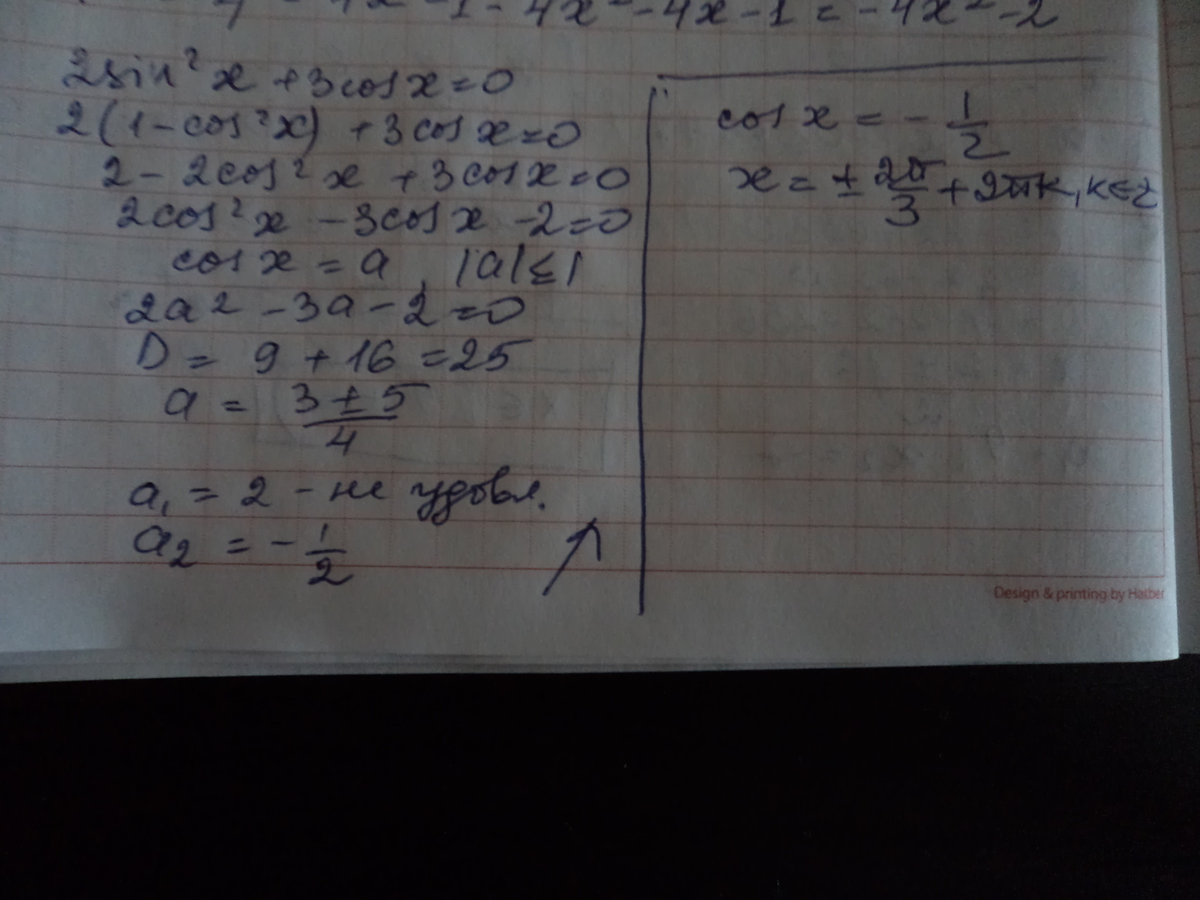 - 4x - 1 - 4x² - 4x - 1 = - 4x² - 2
2sin²x + 3cosx = 0
2(1 - cos²x) + 3cosx = 0
2 - 2cos²x + 3cosx = 0
2cos²x - 3cosx - 2 = 0
cosx = a, |a| ≤ 1
2a² - 3a - 2 = 0
D = 9 + 16 = 25
a = (3 ± 5)/4
a₁ = 2 - не удовл.
a₂ = - 1/2
cosx = - 1/2
x = ± 2π/3 + 2πk, k ∈ Z
Design & printing by Hatber